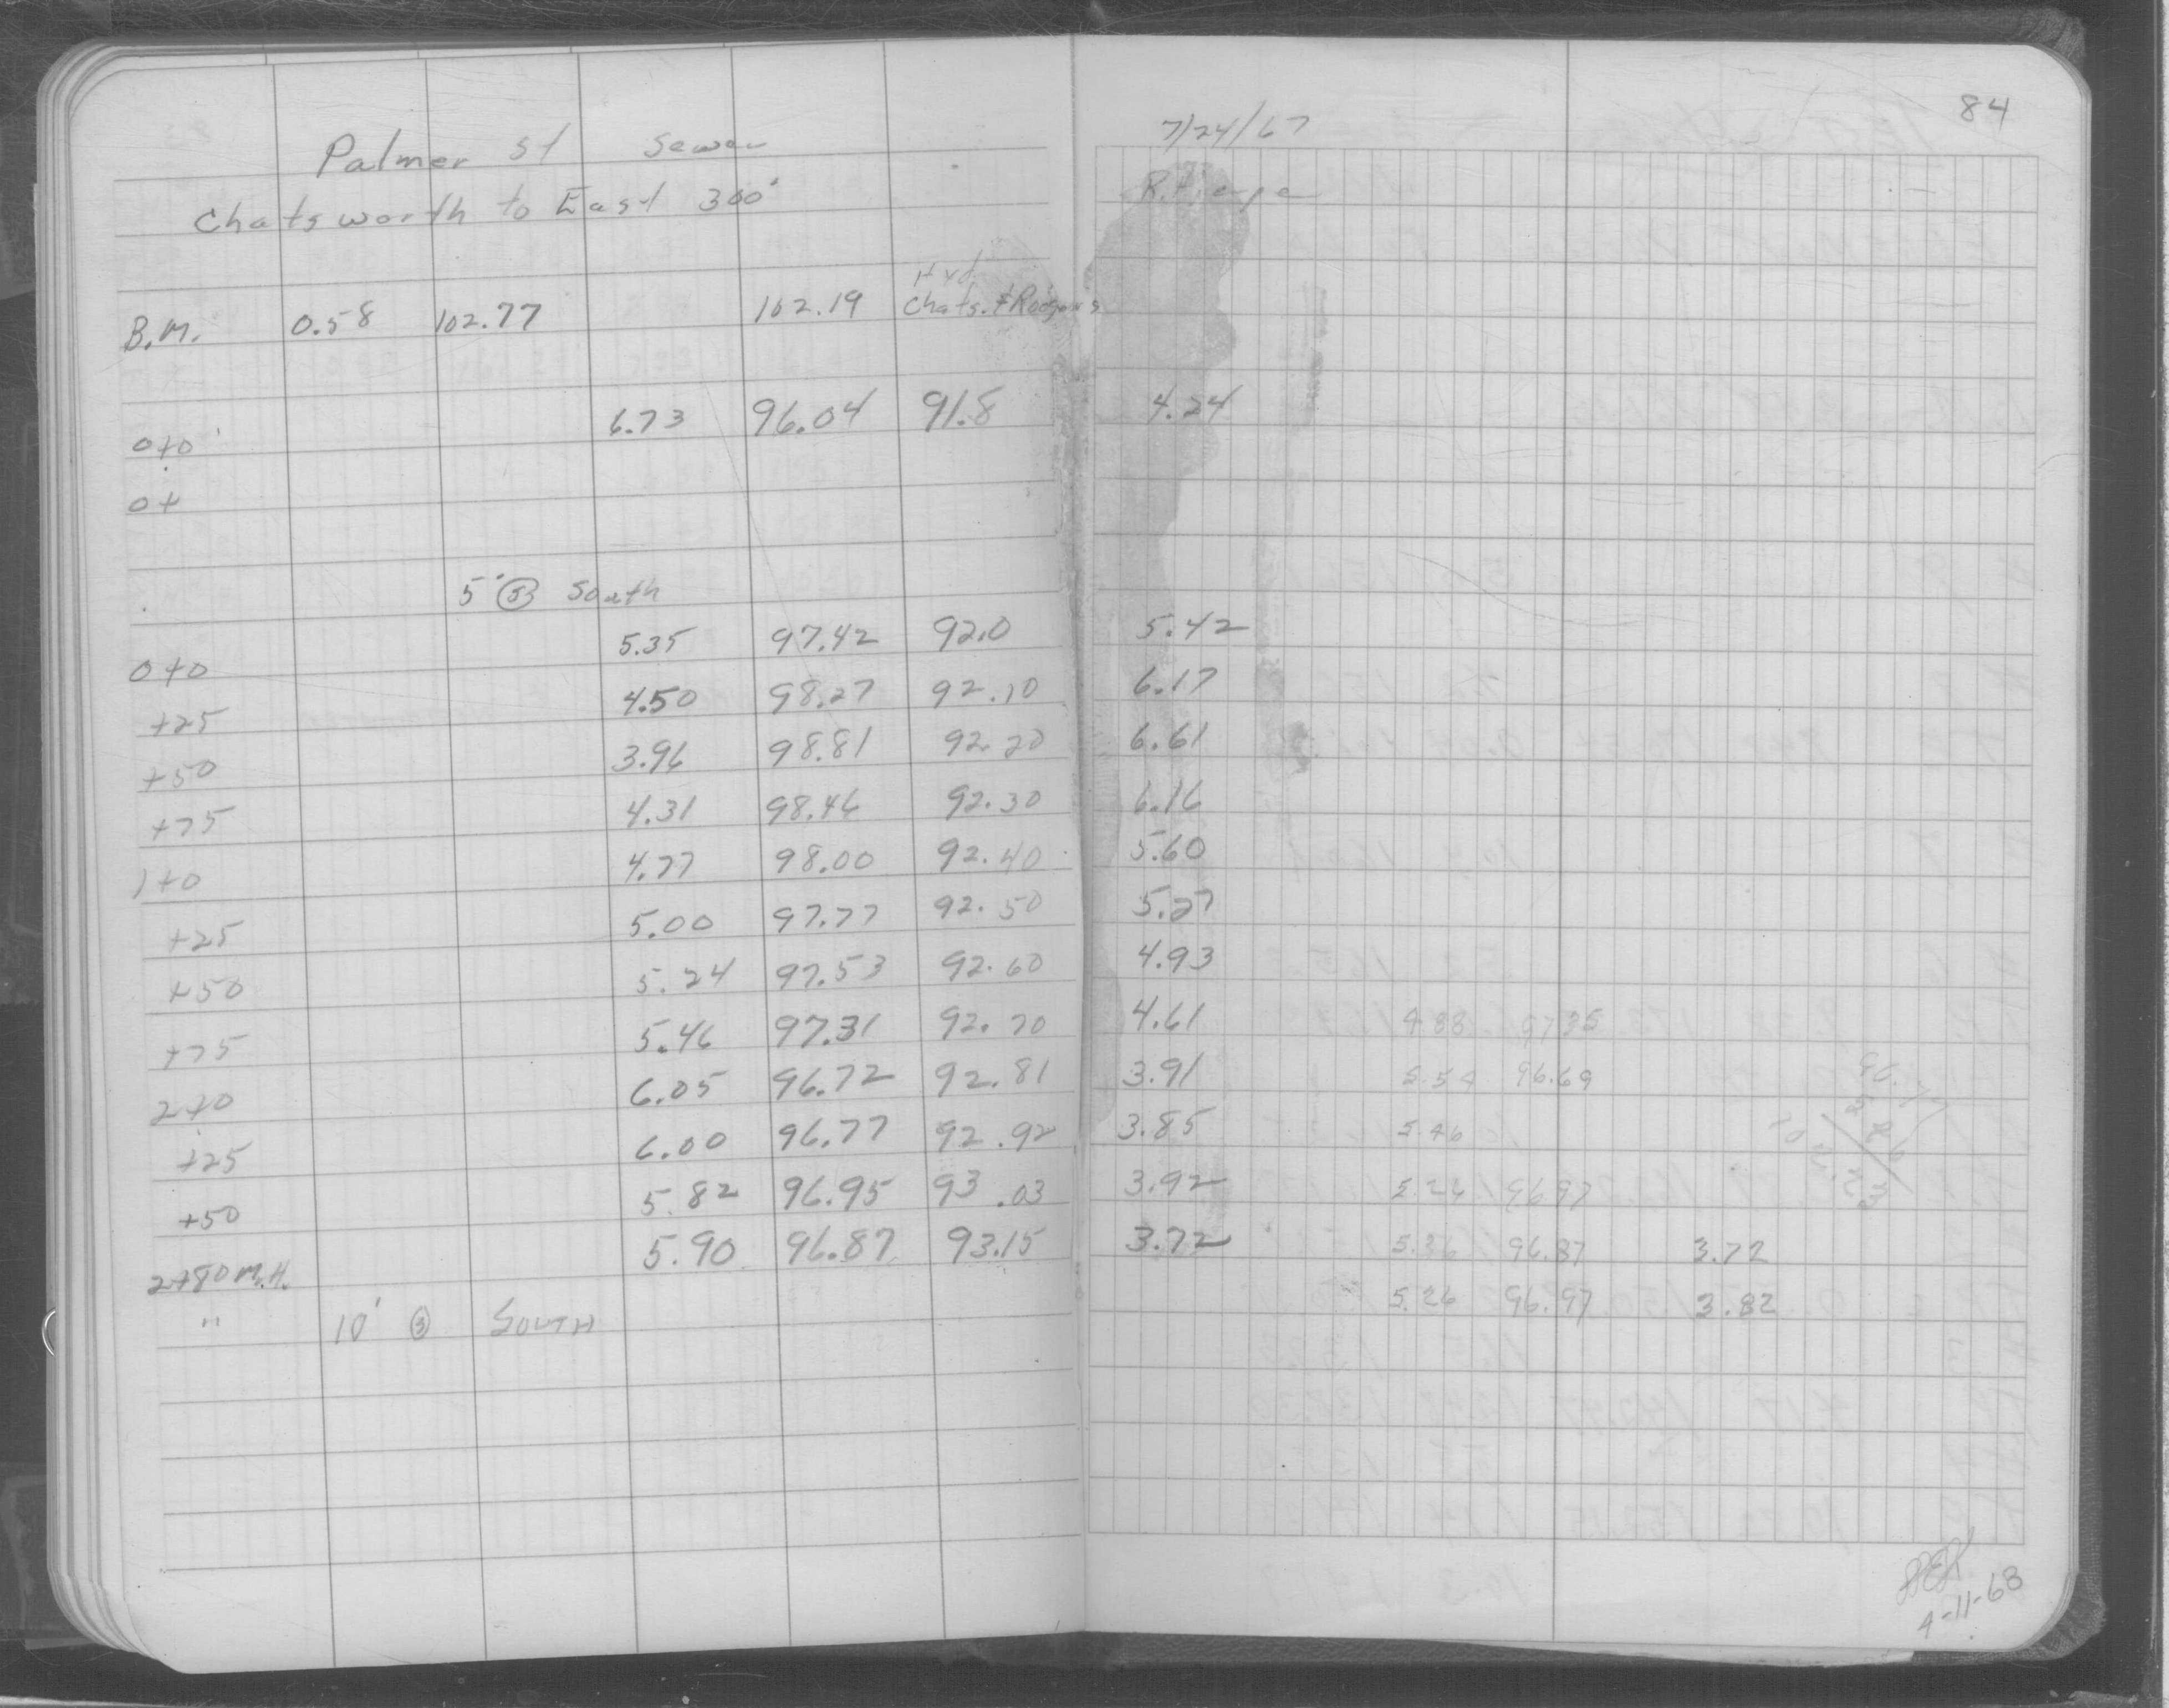 84
7/24/67
Palmer St Sewer
Chatsworth to East 300'
Hyd.
B.M. 0.58 102.77 102.19 Chats. & Rodgers
0+0 6.73 96.04 91.8 4.24
0+
5' South
0+0 5.35 97.42 92.0 5.42
+25 4.50 98.27 92.10 6.17
+50 3.96 98.81 92.20 6.61
+75 4.31 98.46 92.30 6.16
1+0 4.77 98.00 92.40 5.60
+25 5.00 97.77 92.50 5.27
+50 5.24 97.53 92.60 4.93
+75 5.46 97.31 92.70 4.61 4.88 97.35
2+0 6.05 96.72 92.81 3.91 5.54 96.69
+25 6.00 96.77 92.92 3.85 5.46
+50 5.82 96.95 93.03 3.92 5.26 96.97
2+80 M.H. 5.90 96.87 93.15 3.72 5.36 96.87 3.72
" 10' South 5.26 96.97 3.82
4-11-68